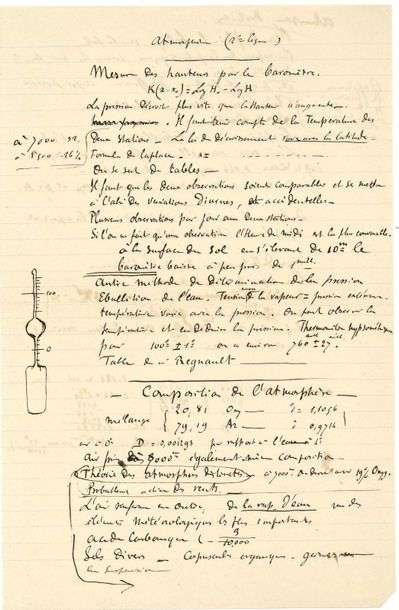 Atmosphère (2e leçon)
Mesure des hauteurs par le baromètre.
K(z-z0) = Lg H0 - Lg H
La pression décroît plus vite que la hauteur n'augmente.
Il faut tenir compte de la Température des
à 7000 m.
deux stations - La loi de décroissement varie avec la latitude.
à 8500 - 16%
Formule de Laplace. z =
On se sert de tables -
Il faut que les deux observations soient comparables et se mettre
à l'abri des variations diurnes, et accidentelles -
Plusieurs observations par jour aux deux stations -
Si l'on ne fait qu'une observation l'heure de midi est la plus convenable.
à la surface du sol en s'élevant de 10m le
baromètre baisse à peu près de 1 mill.
Autre méthode de détermination de la pression
Ebullition de l'eau. Tension de la vapeur = pression extérieure.
température varie avec la pression. On peut observer la
température et en déduire la pression. Thermomètre hypsométrique
100
pour 100° ± 1° on a environ 760 ± 27 mill
0
Table de Regnault
- Composition de l'atmosphère -
mélange
20,81 Oxy - d = 1,1056
79,19 Az - d = 0,9714
air à 0 D = 0,001293 par rapport à l'eau à 4°
air pris à 8000m également même composition -
Théorie des atmosphères distinctes - à 7000m on devrait avoir 19% Oxyg.
Perturbateur action des vents. -
L'air renferme en outre, de la vap. d'eau un des
éléments météorologiques les plus importants
acide carbonique ( - 3/10,000
Sels divers - Corpuscules organiques - germes
en suspension